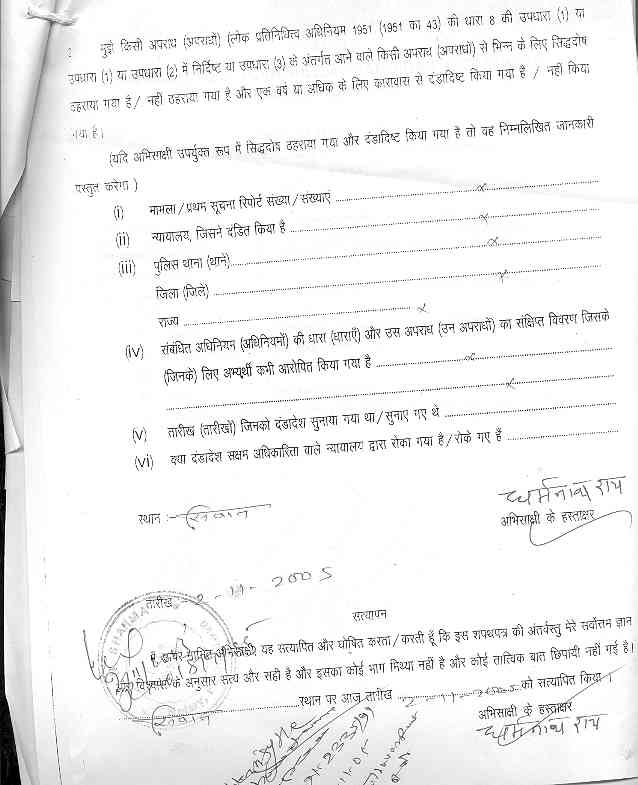 2 मुझे किसी अपराध (अपराधों) (लोक प्रतिनिधित्व अधिनियम 1951 (1951 का 43) की धारा 8 की उपधारा (1) या
उपधारा (1) या उपधारा (2) में निर्दिष्ट या उपधारा (3) के अंतर्गत आने वाले किसी अपराध (अपराधों) से भिन्न के लिए सिद्धदोष
ठहराया गया है / नहीं ठहराया गया है और एक वर्ष या अधिक के लिए कारावास से दंडादिष्ट किया गया है / नहीं किया
गया है।
(यदि अभिसाक्षी उपर्युक्त रूप में सिद्धदोष ठहराया गया और दंडादिष्ट किया गया है तो वह निम्नलिखित जानकारी
प्रस्तुत करेगा )
(i) मामला / प्रथम सूचना रिपोर्ट संख्या / संख्याएं .......... x
(ii) न्यायालय, जिसने दंडित किया है .......... x
(iii) पुलिस थाना (थाने) .......... x
जिला (जिले) .......... x
राज्य .......... x
(iv) संबंधित अधिनियन (अधिनियमों) की धारा (धाराएँ) और उस अपराध (उन अपराधों) का संक्षिप्त विवरण जिसके
(जिनके) लिए अभ्यर्थी कभी आरोपित किया गया है .......... x
.......... x
(v) तारीख (तारीखों) जिनको दंडादेश सुनाया गया था / सुनाए गए थे ..........
(vi) क्या दंडादेश सक्षम अधिकारिता वाले न्यायालय द्वारा रोका गया है / रोके गए हैं ..........
धर्मनाथ राय
स्थान :- सिवान
अभिसाक्षी के हस्ताक्षर
तारीख 2-11-2005
सत्यापन
मैं ऊपर नामित अभिसाक्षी यह सत्यापित और घोषित करता / करती हूँ कि इस शपथपत्र की अंतर्वस्तु मेरे सर्वोत्तम ज्ञान
और विश्वास के अनुसार सत्य और सही है और इसका कोई भाग मिथ्या नहीं है और कोई तात्विक बात छिपादी नहीं गई है।
सिवान स्थान पर आज तारीख 2-11-2005 को सत्यापित किया।
अभिसाक्षी के हस्ताक्षर
धर्मनाथ राय